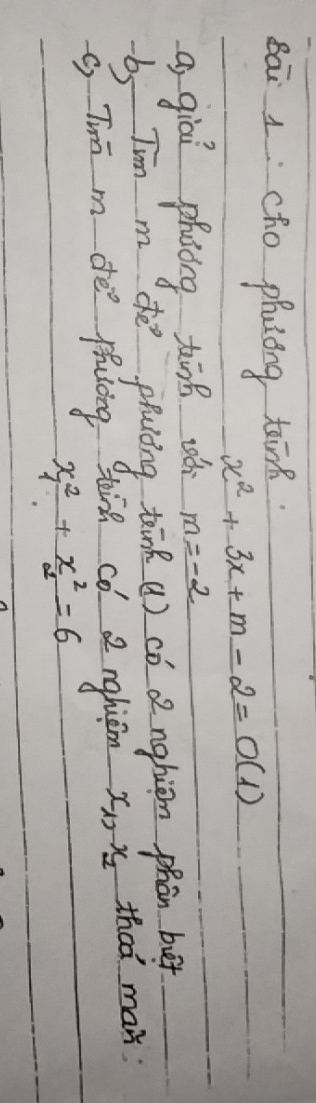 Bài 1: Cho phương trình:
x² + 3x + m - 2 = 0 (1)
a, giải phương trình với m = -2
b, Tìm m để phương trình (1) có 2 nghiệm phân biệt
c, Tìm m để phương trình có 2 nghiệm x₁, x₂ thoả mãn:
x₁² + x₂² = 6